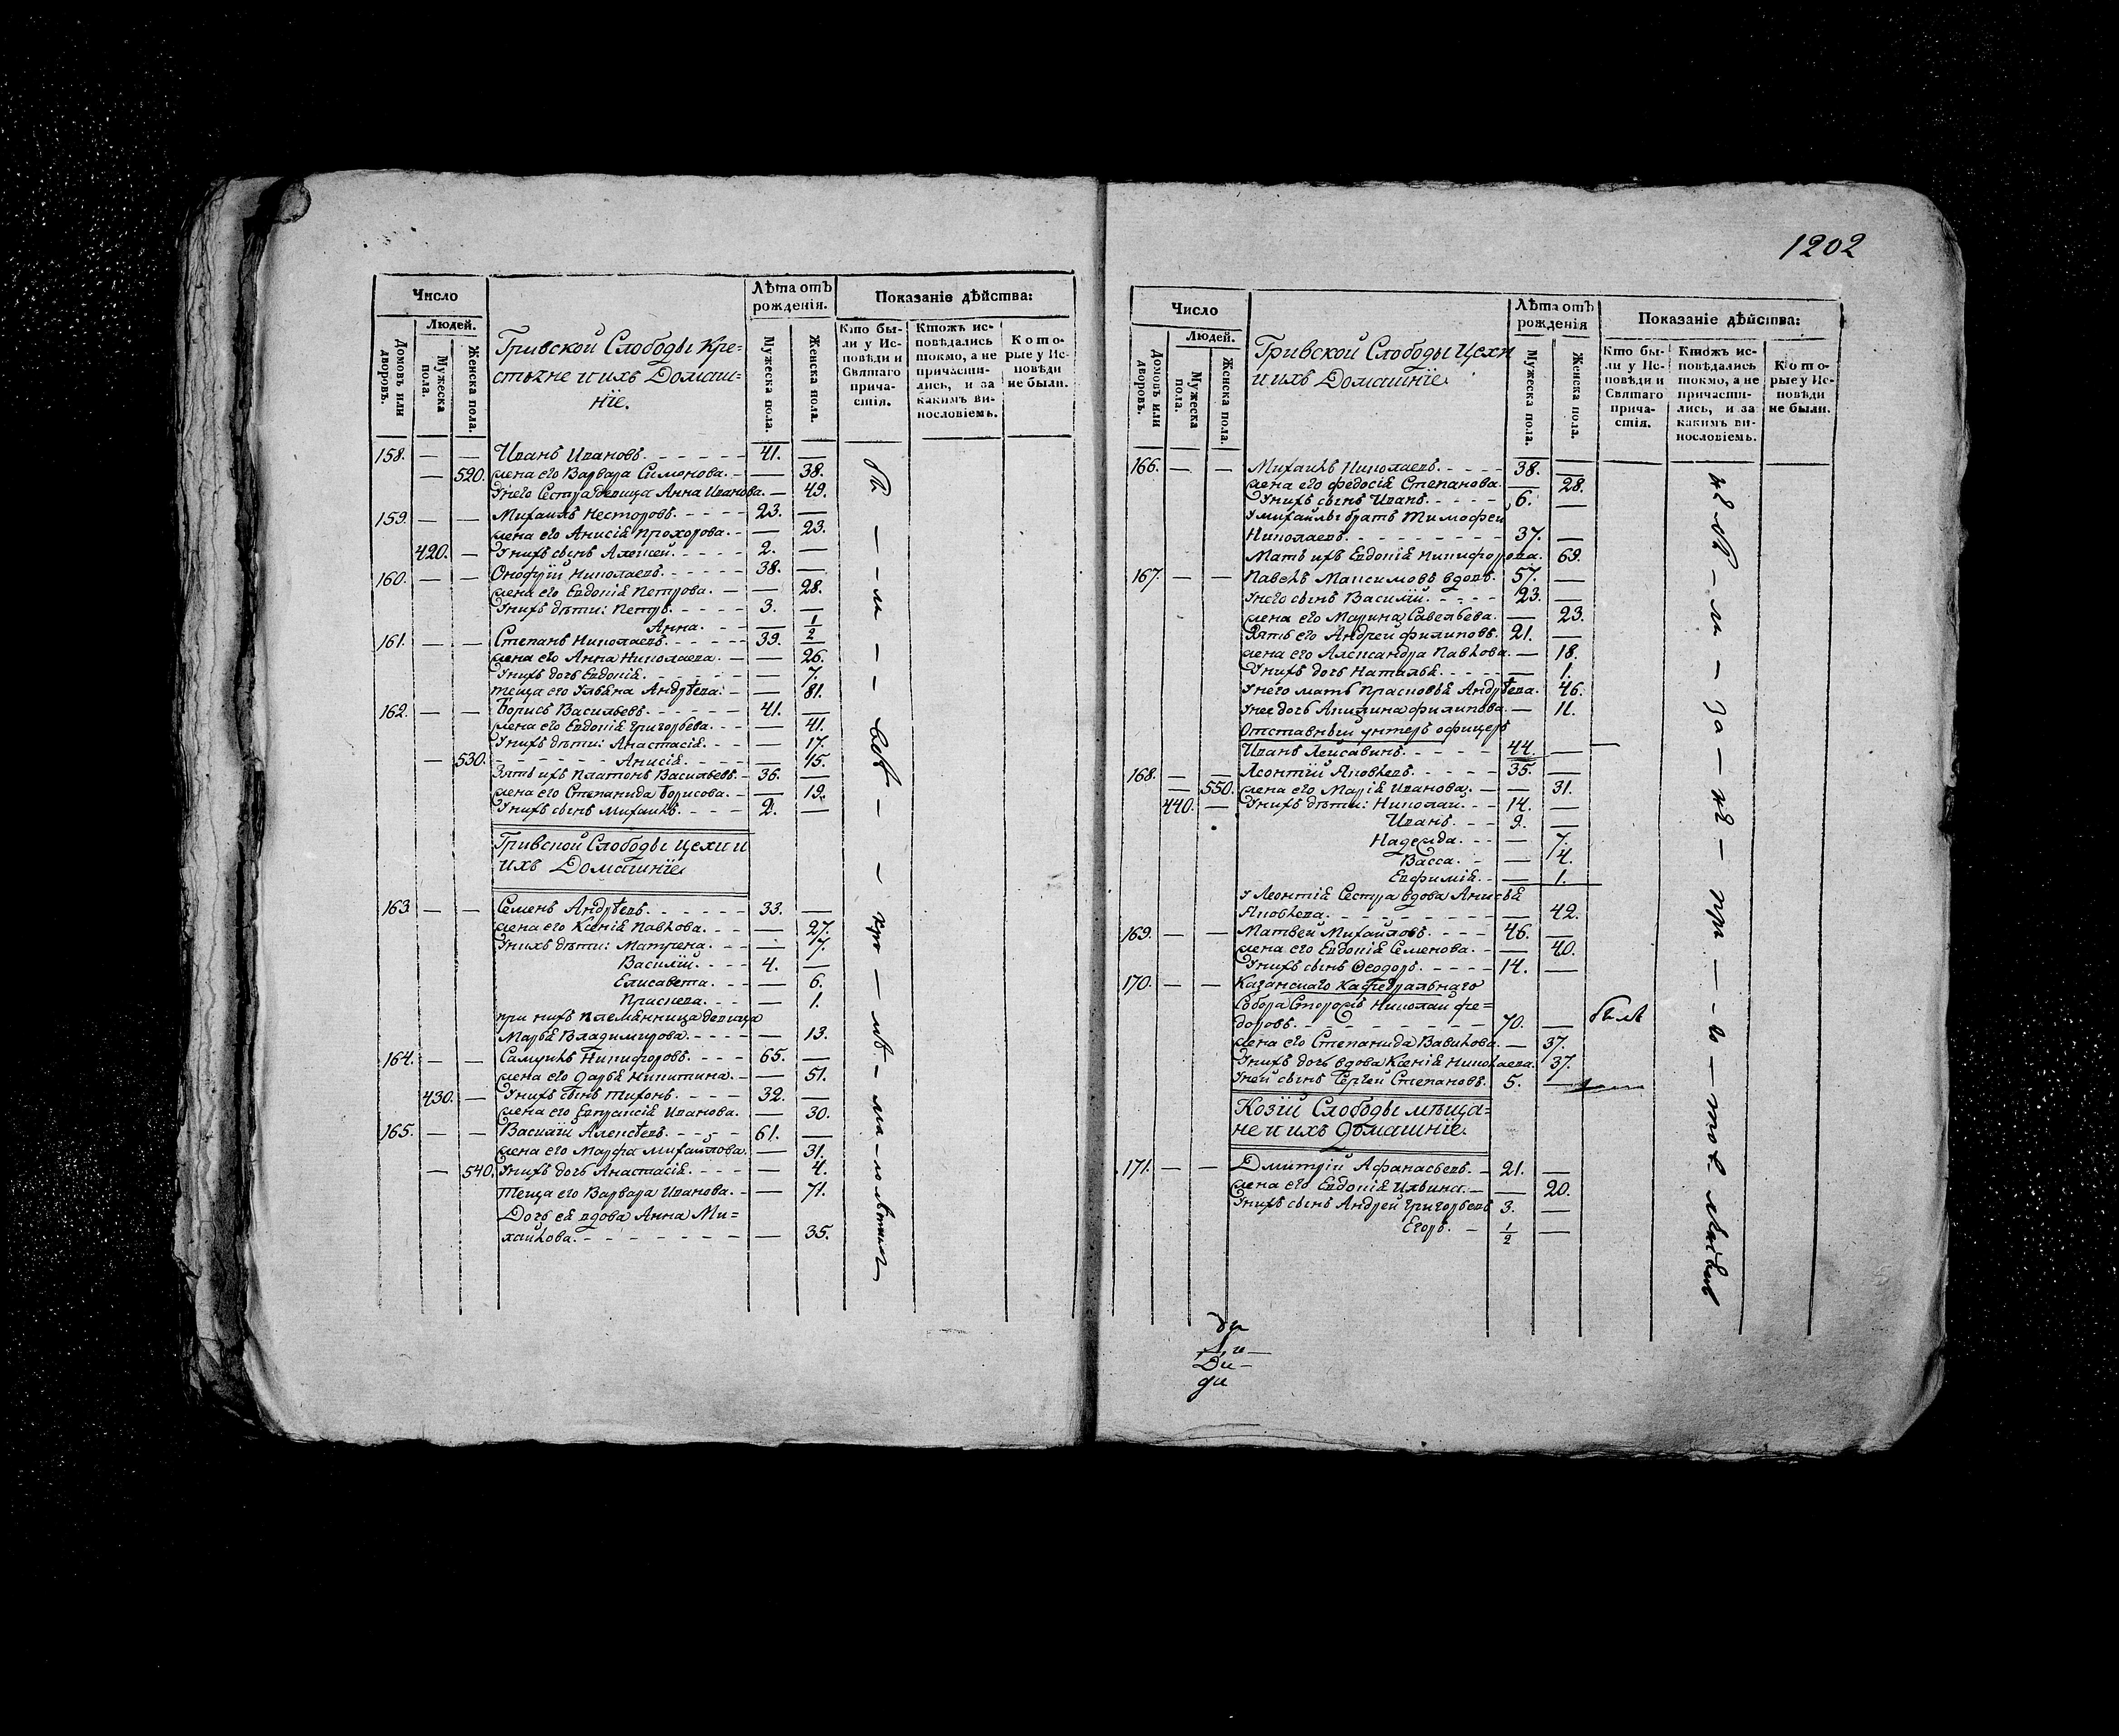 1202
Число
Лѣта отъ рожденія.
Показаніе дѣйства:
Людей.
Домовъ или дворовъ.
Мужеска пола.
Женска пола.
Гривской Слободы Кре=
стьяне и ихъ Домаш=
ніе.
Мужеска пола.
Женска пола.
Кто бы-
ли у Ис-
повѣди и
Святаго
прича-
стія.
Ктожъ ис-
повѣдались
токмо, а не
причасти-
лись, и за
какимъ ви-
нословіемъ.
Кото-
рые у Ис-
повѣди
не были.
158. — — Иванъ Ивановъ. 41. —
— 520. жена его Варвара Симонова. — 38.
У него Сестра девица Анна Иванова. — 49.
159. — — Михаилъ Несторовъ. 23. —
жена его Анисія Прохорова. — 23.
420. — У нихъ сынъ Алексей. 2. —
160. — — Онофрій Николаевъ. 38. —
жена его Евдокія Петрова. — 28.
У нихъ дѣти: Петръ. 3. —
Анна. — 1/2
161. — — Степанъ Николаевъ. 39. —
жена его Анна Николаева. — 26.
У нихъ дочь Евдокія. — 7.
теща его Ульяна Андрѣева. — 81.
162. — — Борисъ Васильевъ. 41. —
жена его Евдокія Григорьева. — 41.
У нихъ дѣти: Анастасія. — 17.
— 530. Анисія. — 15.
Зять ихъ Платонъ Васильевъ. 36. —
жена его Степанида Борисова. — 19.
У нихъ сынъ Михаилъ. 2. —
Гривской Слободы цехи и
ихъ Домашніе
163. — — Семенъ Андрѣевъ. 33. —
жена его Ксенія Павлова. — 27.
У нихъ дѣти: Матрена. — 7.
Василій. 4. —
Елисавета. — 6.
Праскева. — 1.
при нихъ племянница девица
Марья Владимирова. — 13.
164. — — Самуилъ Никифоровъ. 65. —
жена его Дарья Никитина. — 51.
430. — У нихъ сынъ Тихонъ. 32. —
жена его Евпраксія Иванова. — 30.
165. — — Василій Алексѣевъ. 61. —
жена его Марфа Михайлова. — 31.
— 540. У нихъ дочь Анастасія. — 4.
Теща его Варвара Иванова. — 71.
Дочь ея вдова Анна Ми=
хайлова. — 35.
Число
Лѣта отъ рожденія
Показаніе дѣйства:
Людей.
Домовъ или дворовъ.
Мужеска пола.
Женска пола.
Гривской Слободы Цехи
и ихъ Домашніе
Мужеска пола.
Женска пола.
Кто бы-
ли у Ис-
повѣди и
Святаго
прича-
стія.
Ктожъ ис-
повѣдались
токмо, а не
причасти-
лись, и за
какимъ ви-
нословіемъ.
Кото-
рые у Ис-
повѣди
не были.
166. — — Михаилъ Николаевъ. 38. —
жена его Федосія Степанова. — 28.
У нихъ сынъ Иванъ. 6. —
У михайлы братъ Тимофей
Николаевъ. 37. —
Мать ихъ Евдокія Никифорова. 69.
167. — — Павелъ Максимовъ вдовъ. 57. —
У него сынъ Василій. 23. —
жена его Марина Савельева. — 23.
Зять его Андрей филиповъ. 21. —
жена его Александра Павлова. — 18.
У нихъ дочь Наталья. — 1.
У него мать Прасковья Андрѣева. 46.
У нее дочь Акилина филипова. — 11.
Отставный унтеръ офицеръ
Иванъ 44. —
168. — — Леонтій Яковлевъ. 35. —
— 550. жена его Марія Иванова. — 31.
440. — У нихъ дѣти: Николай. 14. —
Иванъ. 9. —
Надежда. — 7.
Васса. — 4.
Евфимія. — 1.
У Леонтія Сестра вдова Анисья
Яковлева. — 42.
169. — — Матвей Михайловъ. 46. —
жена его Евдокія Семенова. — 40.
У нихъ сынъ Ѳеодоръ. 14. —
170. — — Казанскаго Кафедральнаго
Собора Сторожъ Николай фе=
доровъ. 70. — былъ
жена его Степанида Вавилова. — 37.
У нихъ дочь вдова Ксенія Николаева. 37.
У ней сынъ Сергей Степановъ. 5. —
Козій Слободы мѣща=
не и ихъ домашніе.
171. — — Дмитрій Афанасьевъ. 21. —
жена его Евдокія Ильина. — 20.
У нихъ сынъ Андрей Григорьевъ 3. —
Егоръ. 1/2 —